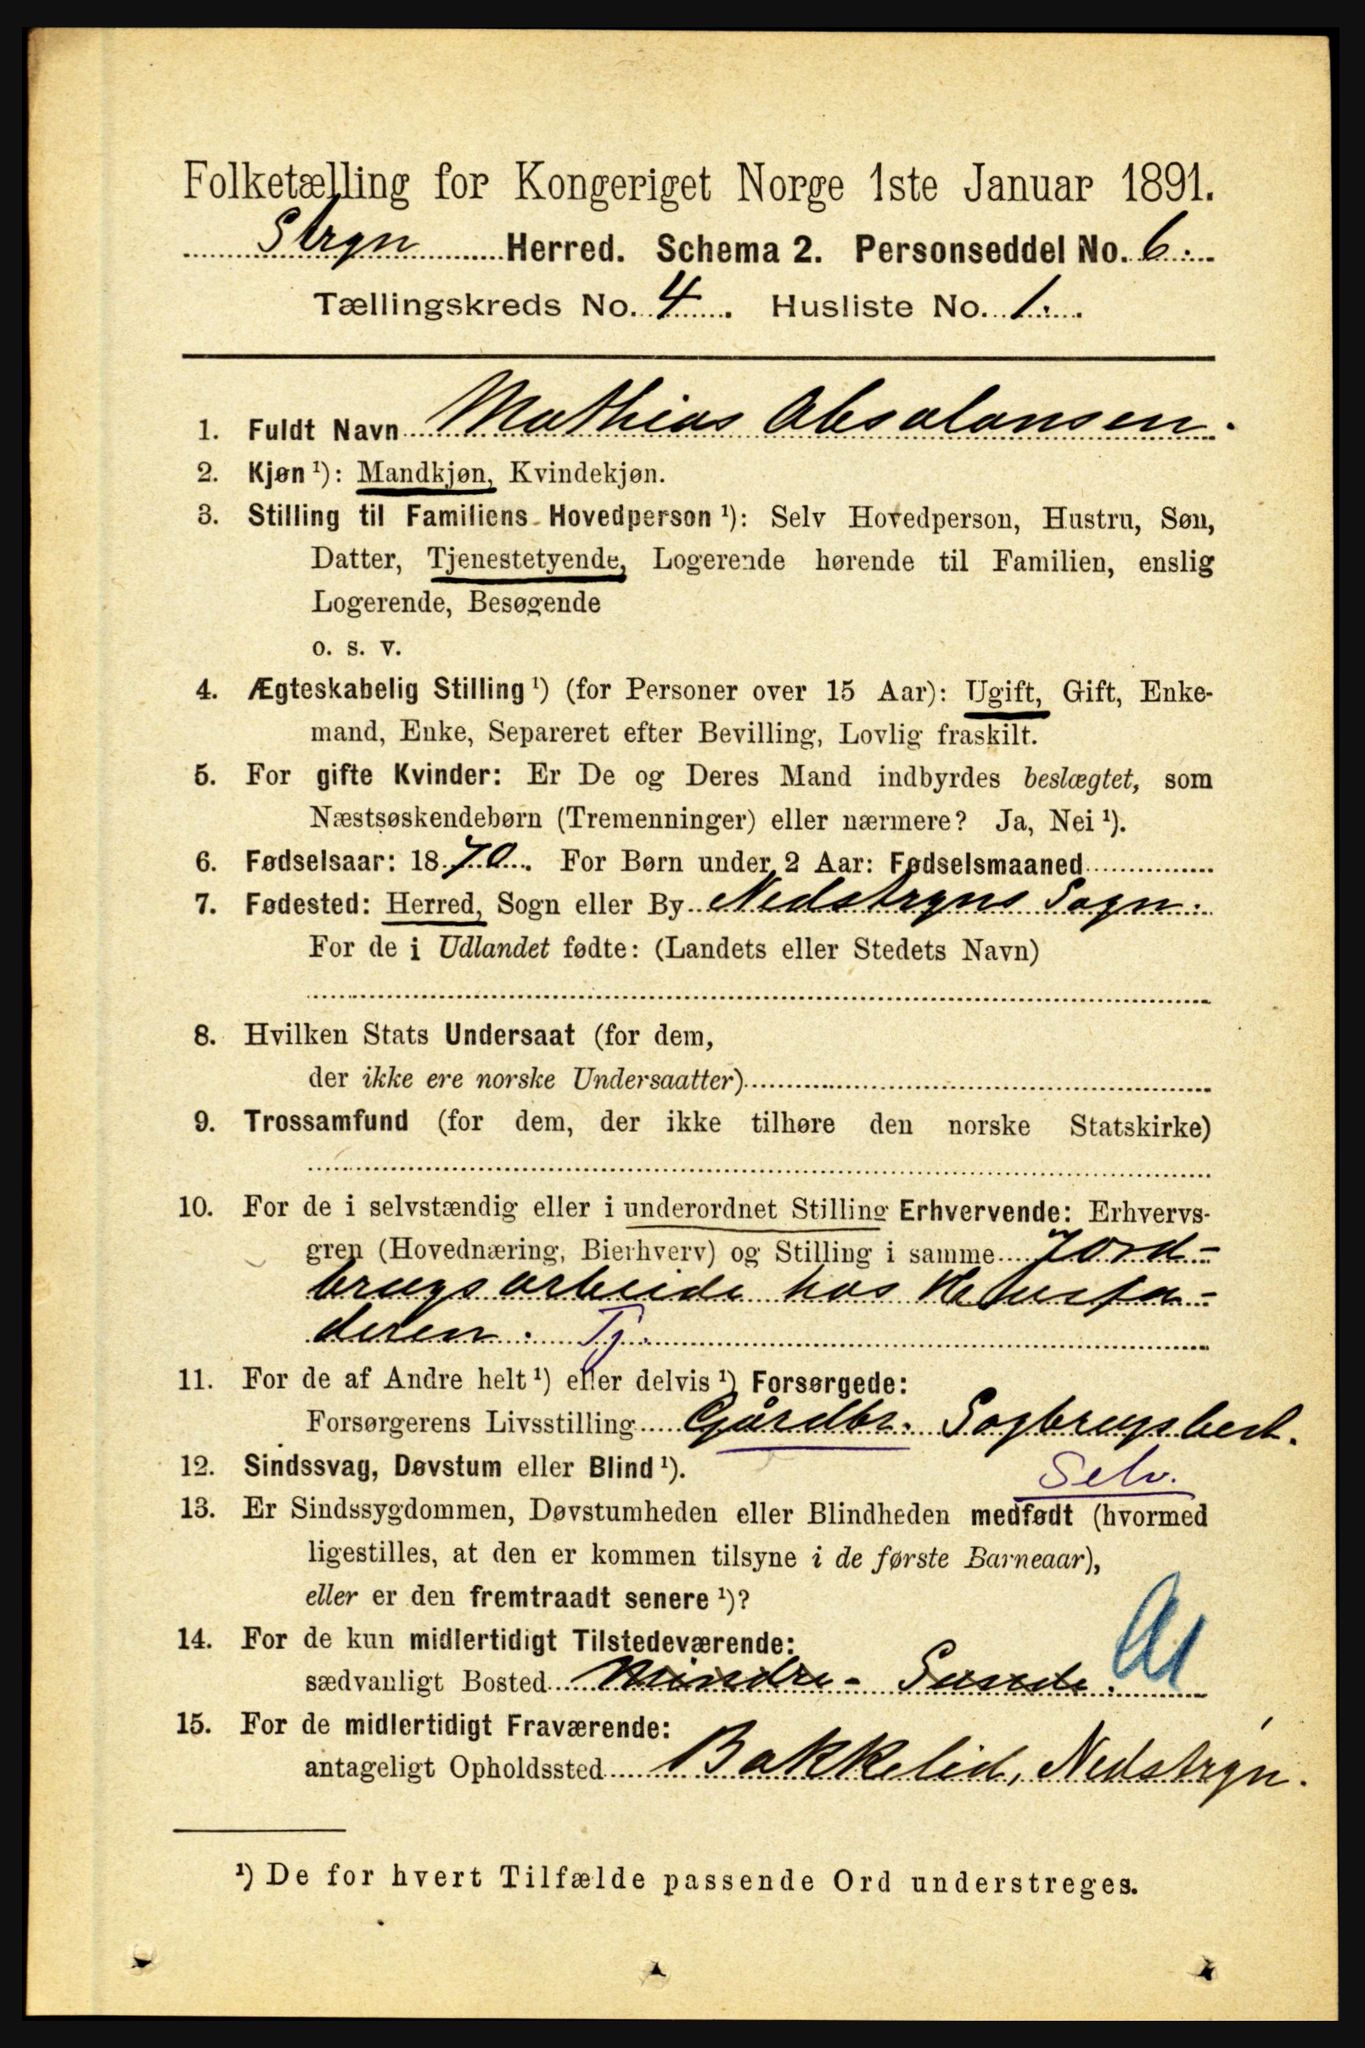 Folketælling for Kongeriget Norge 1ste Januar 1891.
Stryn Herred. Schema 2. Personseddel No. 6.
Tællingskreds No. 4. Husliste No. 1.
1. Fuldt Navn Mathias Absalonsen.
2. Kjøn ¹): Mandkjøn, Kvindekjøn.
3. Stilling til Familiens Hovedperson ¹): Selv Hovedperson, Hustru, Søn,
Datter, Tjenestetyende, Logerende hørende til Familien, enslig
Logerende, Besøgende
o. s. v.
4. Ægteskabelig Stilling ¹) (for Personer over 15 Aar): Ugift, Gift, Enke-
mand, Enke, Separeret efter Bevilling, Lovlig fraskilt.
5. For gifte Kvinder: Er De og Deres Mand indbyrdes beslægtet, som
Næstsøskendebørn (Tremenninger) eller nærmere? Ja, Nei ¹).
6. Fødselsaar: 1870. For Børn under 2 Aar: Fødselsmaaned
7. Fødested: Herred, Sogn eller By Nedstryns Sogn.
For de i Udlandet fødte: (Landets eller Stedets Navn)
8. Hvilken Stats Undersaat (for dem,
der ikke ere norske Undersaatter)
9. Trossamfund (for dem, der ikke tilhøre den norske Statskirke)
10. For de i selvstændig eller i underordnet Stilling Erhvervende: Erhvervs-
gren (Hovednæring, Bierhverv) og Stilling i samme Jord-
brugsarbeide hos Husfa-
deren. Tj.
11. For de af Andre helt ¹) eller delvis ¹) Forsørgede:
Forsørgerens Livsstilling Gårdbr. Sagbrugsbest.
12. Sindssvag, Døvstum eller Blind ¹). Selv.
13. Er Sindssygdommen, Døvstumheden eller Blindheden medfødt (hvormed
ligestilles, at den er kommen tilsyne i de første Barneaar),
eller er den fremtraadt senere ¹)?
14. For de kun midlertidigt Tilstedeværende:
sædvanligt Bosted Mindre - Sunde.
15. For de midlertidigt Fraværende:
antageligt Opholdssted Bakkelid, Nedstryn.
¹) De for hvert Tilfælde passende Ord understreges.